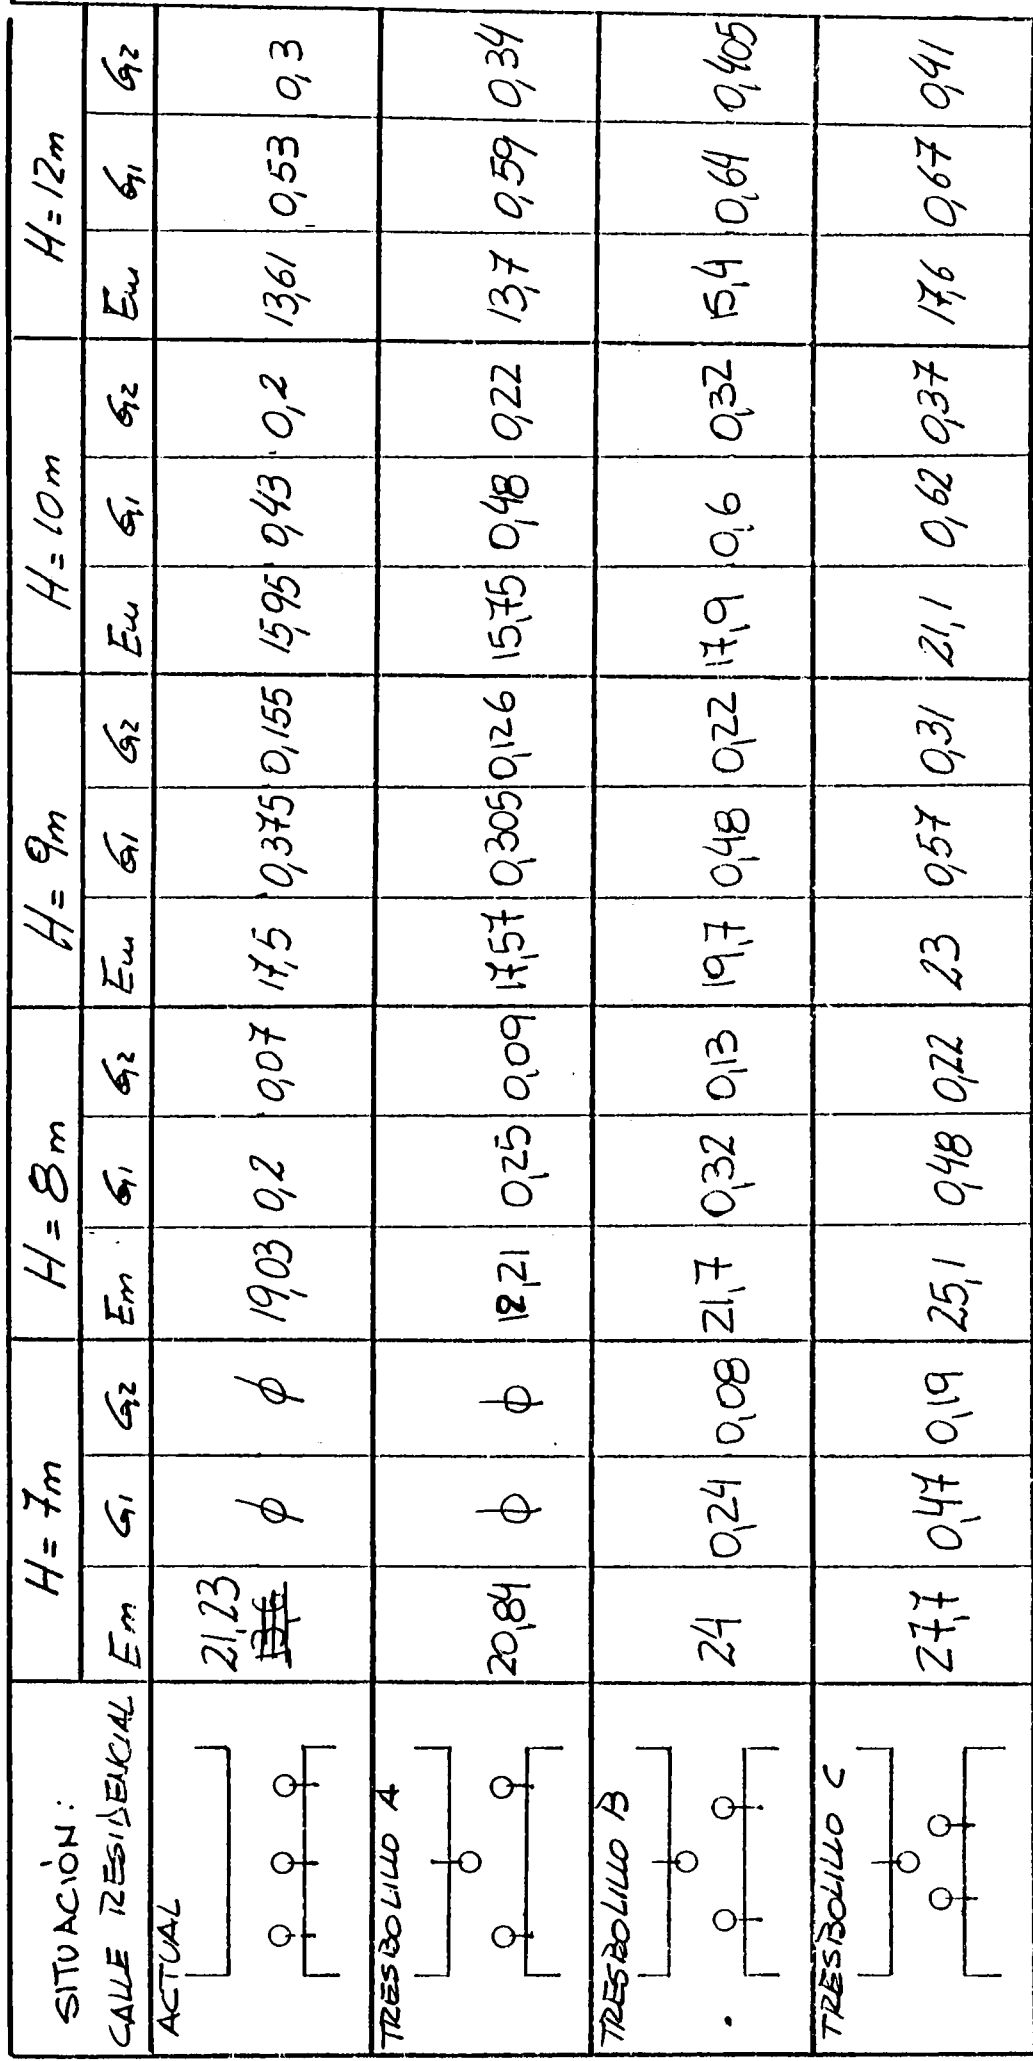 SITUACIÓN: H=7m H=8m H=9m H=10m H=12m
CALLE RESIDENCIAL Em G1 G2 Em G1 G2 Em G1 G2 Em G1 G2 Em G1 G2
ACTUAL 21,23 ϕ ϕ 19,03 0,2 0,07 17,5 0,375 0,155 15,95 0,43 0,2 13,61 0,53 0,3
TRESBOLILLO A 20,84 ϕ ϕ 18,21 0,25 0,09 17,57 0,305 0,126 15,75 0,48 0,22 13,7 0,59 0,34
TRESBOLILLO B 24 0,24 0,08 21,7 0,32 0,13 19,7 0,48 0,22 17,9 0,6 0,32 15,4 0,64 0,405
TRESBOLILLO C 27,7 0,47 0,19 25,1 0,48 0,22 23 0,57 0,31 21,1 0,62 0,37 17,6 0,67 0,41